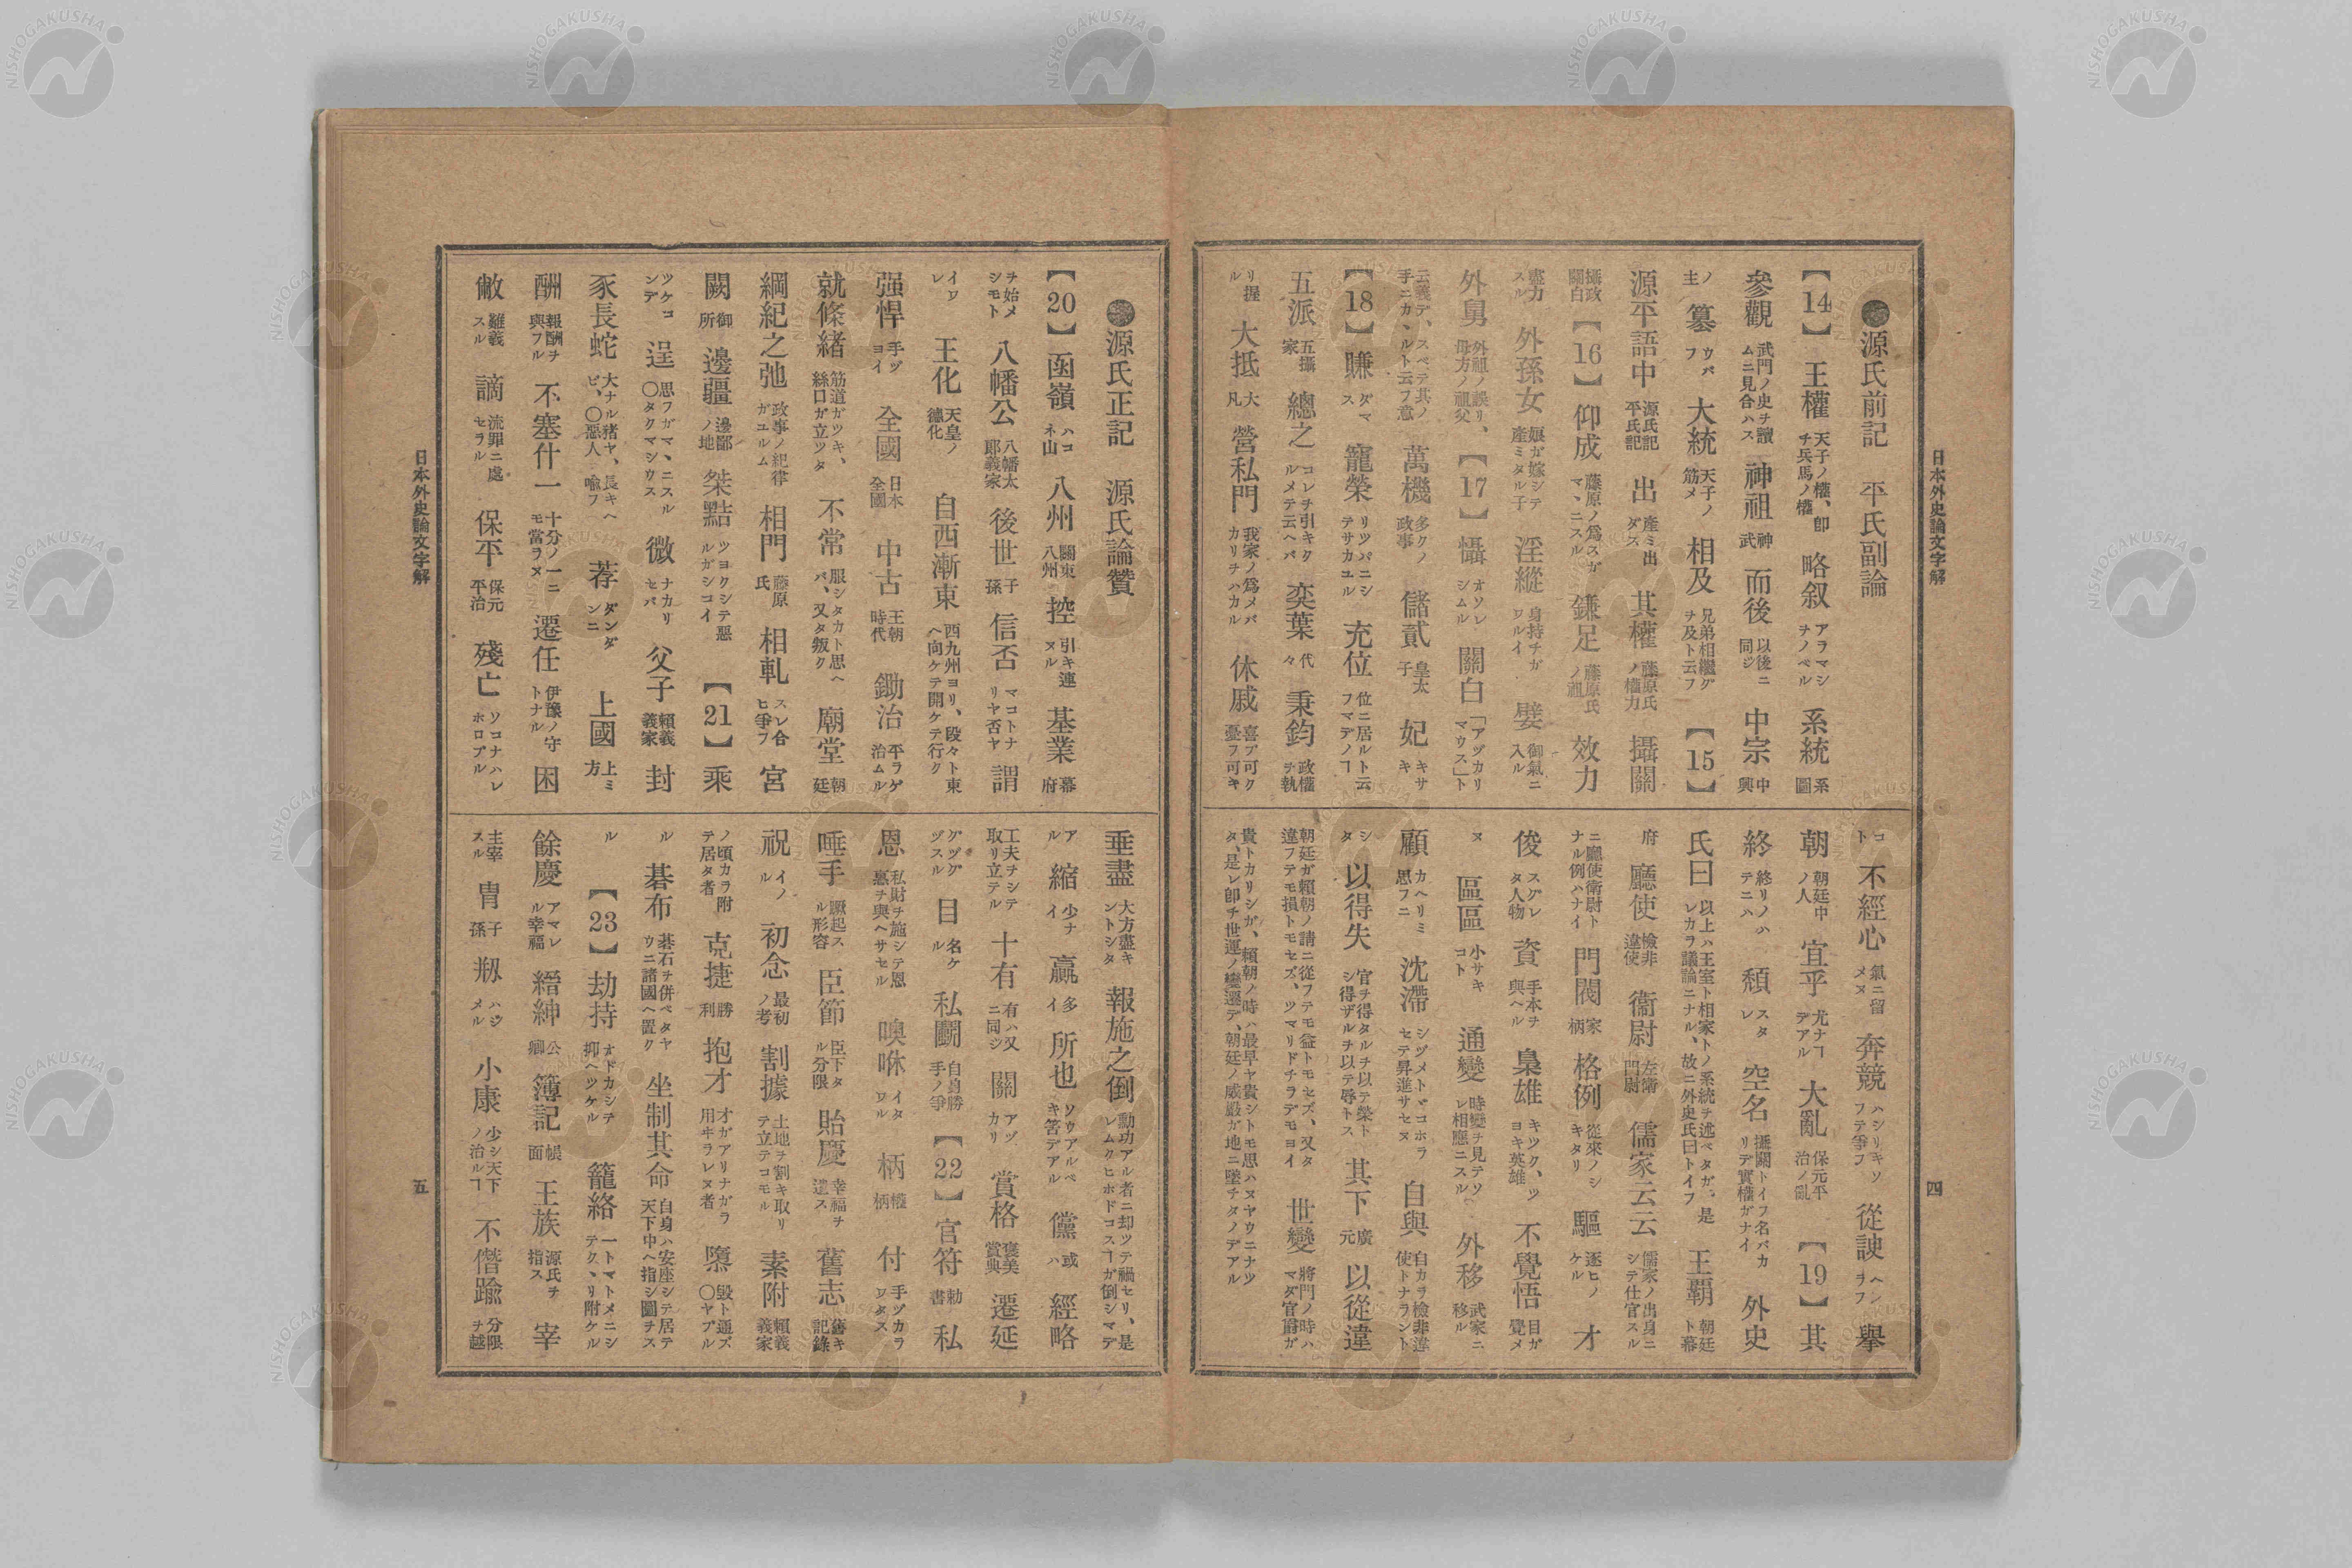 日本外史論文字解
四
●源氏前記　平氏副論
【14】王權 天子ノ權、卽チ兵馬ノ權 略叙 アラマシチノベル 系統 系圖
參觀 武門ノ史ヲ讀ムニ見合ハス 神祖 神武 而後 以後ニ同ジ 中宗 中興
ノ主 簒 ウバフ 大統 天子ノ筋メ 相及 兄弟相繼グヲ及ト云フ 【15】
源平語中 源氏記平氏記 出 產ミ出ダス 其權 藤原氏ノ權力 攝關
攝政關白 【16】仰成 藤原ノ爲スガマヽニスル 鎌足 藤原氏ノ祖 效力
盡力スル 外孫女 娘ガ嫁シテ產ミタル子 淫縱 身持チガワルイ 嬖 御氣ニ入ル
外舅 外祖ノ誤リ、母方ノ祖父 【17】懾 オソレシムル 關白 「アヅカリマウス」ト
云義デ、スベテ其ノ手ニカヽルト云フ意 萬機 多クノ政事 儲貳 皇太子 妃 キサキ
【18】賺 ダマス 寵榮 リツパニシテサカユル 充位 位ニ居ルト云フマデノヿ
五派 五攝家 總之 コレヲ引キクルメテ云ヘバ 奕葉 代々 秉鈞 政權ヲ執
リ握ル 大抵 大凡 營私門 我家ノ爲メバカリヲハカル 休戚 喜ブ可ク憂フ可キ
コト 不經心 氣ニ留メヌ 奔競 ハシリキソフテ爭フ 從諛 ヘンヲフ 擧
朝 朝廷中ノ人 宜乎 尤ナヿデアル 大亂 保元平治ノ亂 【19】其
終 終リノハテニハ 頽 スタレ 空名 攝關トイフ名バカリデ實權ガナイ 外史
氏曰 以上ハ王室ト相家トノ系統ヲ述ベタガ、是レカラ議論ニナル、故ニ外史氏曰トイフ 王覇 朝廷ト幕
府 廳使 檢非違使 衞尉 左衞門尉 儒家云云 儒家ノ出身ニシテ仕官スル
ニ廳使衞尉トナル例ハナイ 門閥 家柄 格例 從來ノシキタリ 驅 逐ヒノケル 才
俊 スグレタ人物 資 手本ヲ與ヘル 梟雄 キツク、ツヨキ英雄 不覺悟 目ガ覺メ
ヌ 區區 小サキコト 通變 時變ヲ見テソレ相應ニスル 外移 武家ニ移ル
顧 カヘリミ思フニ 沈滯 シヅメトヾコホラセテ昇進サセヌ 自與 自カラ檢非違使トナラント
シタ 以得失 官ヲ得タルヲ以テ榮トシ得ザルヲ以テ辱トス 其下 廣元 以從違
朝廷ガ賴朝ノ請ニ從フテモ益トモセズ、又タ違フテモ損トモセズ、ツマリドチラデモヨイ 世變 將門ノ時ハマダ官爵ガ
貴トカリシガ、賴朝ノ時ハ最早ヤ貴シトモ思ハヌヤウニナツタ、是レ卽チ世運ノ變遷デ、朝廷ノ威嚴ガ地ニ墜チタノデアル
●源氏正記　源氏論贊
【20】函嶺 ハコネ山 八州 關東八州 控 引キ連ヌル 基業 幕府
ヲ始メシモト 八幡公 八幡太郞義家 後世 子孫 信否 マコトナリヤ否ヤ 謂
イワレ 王化 天皇ノ德化 自西漸東 西九州ヨリ、段々ト東ヘ向ケテ開ケテ行ク
强悍 手ヅヨイ 全國 日本全國 中古 王朝時代 鋤治 平ラゲ治ムル
就條緖 筋道ガツキ、絲口ガ立ツタ 不常 服シタカト思ヘバ、又タ叛ク 廟堂 朝廷
綱紀之弛 政事ノ紀律ガユルム 相門 藤原氏 相軋 スレ合ヒ爭フ 宮
闕 御所 邊疆 邊鄙ノ地 桀黠 ツヨクシテ惡ルガシコイ 【21】乘
ツケコンデ 逞 思フガマヽニスル〇タクマシウス 微 ナカリセバ 父子 賴義義家 封
豕長蛇 大ナル猪ヤ、長キヘビ、〇惡人ニ喩フ 荐 ダンダンニ 上國 上ミ方
酬 報酬ヲ與フル 不塞什一 十分ノ一ニモ當ラヌ 遷任 伊豫ノ守トナル 困
憊 難義スル 謫 流罪ニ處セラル 保平 保元平治 殘亡 ソコナハレホロブル
垂盡 大方盡キントシタ 報施之倒 勳功アル者ニ却ツテ禍セリ、是レムクヒホドコスヿガ倒シマデ
アル 縮 少ナイ 贏 多イ 所也 ソウアルベキ筈デアル 儻 或ハ 經略
工夫ヲシテ取リ立テル 十有 有ハ又ニ同ジ 關 アヅカリ 賞格 褒美賞典 遷延
グヅグヅスル 目 名ケル 私鬪 自身勝手ノ爭 【22】官符 勅書 私
恩 私財ヲ施シテ恩惠ヲ與ヘサセル 噢咻 イタワル 柄 權柄 付 手ヅカラワタス
唾手 蹶起スル形容 臣節 臣下タル分限 貽慶 幸福ヲ遺ス 舊志 舊キ記錄
祝 イノル 初念 最初ノ考 割據 土地ヲ割キ取リテ立テコモル 素附 賴義義家
ノ頃カラ附テ居タ者 克捷 勝利 抱才 才ガアリナガラ用ヰラレヌ者 隳 毀ト通ズ〇ヤブル
ル 碁布 碁石ヲ併ベタヤウニ諸國ヘ置ク 坐制其命 自身ハ安座シテ居テ天下中ヘ指シ圖ヲス
ル 【23】劫持 オドカシテ抑ヘツケル 籠絡 一トマトメニシテクヽリ附ケル
餘慶 アマレル幸福 縉紳 公卿 簿記 帳面 王族 源氏ヲ指ス 宰
主宰スル 冑 子孫 剏 ハジメル 小康 少シ天下ノ治ルヿ 不僭踰 分限ヲ越
日本外史論文字解
五